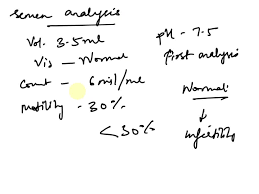 Semen analysis
Vol. 3.5ml
Vis — Normal
Count — 6 mil/ml
Motility - 30%
<30%
pH - 7.5
First analysis
Normal
↓
infertility